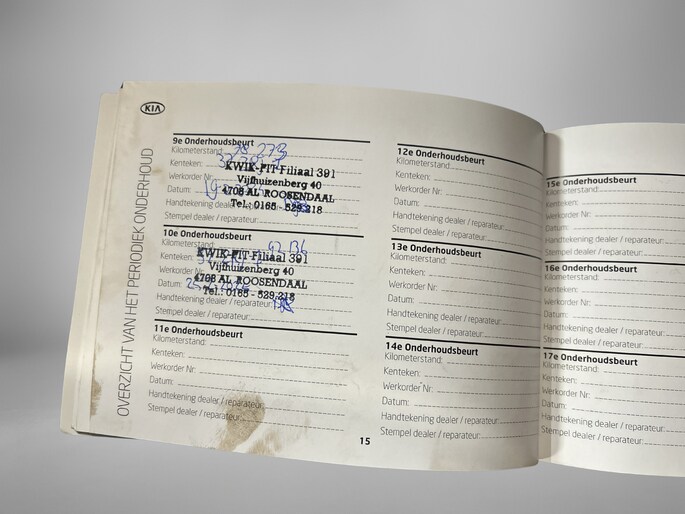 KIA
OVERZICHT VAN HET PERIODIEK ONDERHOUD
9e Onderhoudsbeurt
Kilometerstand: 78 273
Kenteken:
KWIK-FIT Filiaal 391
Werkorder Nr:
Vijfhuizenberg 40
Datum:
4708 AL ROOSENDAAL
Handtekening dealer / reparateur:
Tel.: 0165 - 529 218
Stempel dealer / reparateur:
10e Onderhoudsbeurt
Kilometerstand:
Kenteken:
KWIK-FIT Filiaal 391
Werkorder Nr:
Vijfhuizenberg 40
Datum:
4708 AL ROOSENDAAL
Tel.: 0165 - 529 218
Handtekening dealer / reparateur:
Stempel dealer / reparateur:
11e Onderhoudsbeurt
Kilometerstand:
Kenteken:
Werkorder Nr:
Datum:
Handtekening dealer / reparateur:
Stempel dealer / reparateur:
15
12e Onderhoudsbeurt
Kilometerstand:
Kenteken:
Werkorder Nr:
Datum:
Handtekening dealer / reparateur:
Stempel dealer / reparateur:
13e Onderhoudsbeurt
Kilometerstand:
Kenteken:
Werkorder Nr:
Datum:
Handtekening dealer / reparateur:
Stempel dealer / reparateur:
14e Onderhoudsbeurt
Kilometerstand:
Kenteken:
Werkorder Nr:
Datum:
Handtekening dealer / reparateur:
Stempel dealer / reparateur:
15e Onderhoudsbeurt
Kilometerstand:
Kenteken:
Werkorder Nr:
Datum:
Handtekening dealer / reparateur:
Stempel dealer / reparateur:
16e Onderhoudsbeurt
Kilometerstand:
Kenteken:
Werkorder Nr:
Datum:
Handtekening dealer / reparateur:
Stempel dealer / reparateur:
17e Onderhoudsbeurt
Kilometerstand:
Kenteken:
Werkorder Nr:
Datum:
Handtekening dealer / reparateur:
Stempel dealer / reparateur: